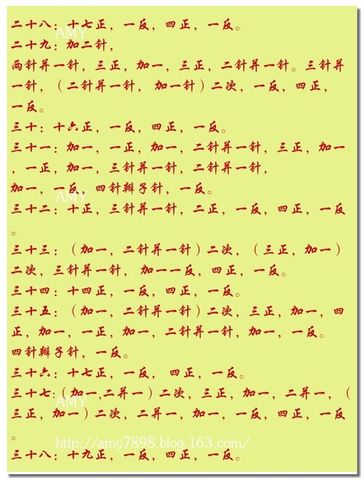 二十八：十七正，一反，四正，一反。
AMY
二十九：加二针，
两针并一针，三正，加一，三正，二针并一针。三针并
一针，（二针并一针，加一针）二次，一反，四正，
一反。
三十：十六正，一反，四正，一反。
三十一：加一，一正，加一，二针并一针，三正，加一
，一正，加一，三针并一针，二针并一针，
加一，一反，四针辫子针，一反。
AMY
三十二：十正，三针并一针，二正，一反，四正，一反
。
三十三：（加一，二针并一针）二次，（三正，加一）
二次，三针并一针，加一一反，四正，一反。
三十四：十四正，一反，四正，一反。
三十五：（加一，二针并一针）二次，三正，加一，四
正，加一，一正，加一，二针并一针，加一，一反。
四针辫子针，一反。
三十六：十七正，一反，四正，一反。
三十七:（加一,二并一）二次，三正，加一，二并一，（
AMY
三正，加一）二次，二并一，加一，一反，四正，一反
。
http://amy7898.blog.163.com/
三十八：十九正，一反，四正，一反。